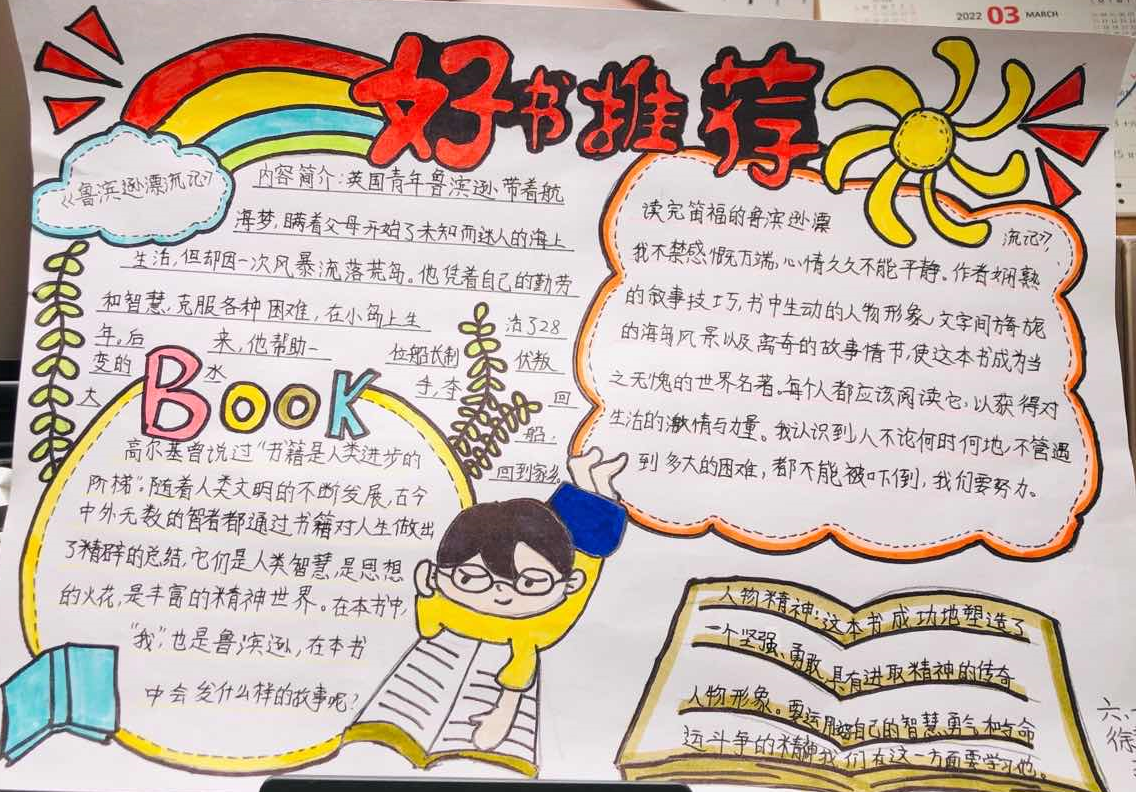 2022 03 MARCH
好书推荐
《鲁滨逊漂流记》
内容简介：英国青年鲁滨逊带着航
海梦，瞒着父母开始了未知而迷人的海上
生活，但却因一次风暴流落荒岛。他凭着自己的勤劳
和智慧，克服各种困难，在小岛上生
活了28
年。后来，他帮助一
位船长制伏叛
变的水
手，夺回
大
船，
回到家乡
BOOK
高尔基曾说过"书籍是人类进步的
阶梯"。随着人类文明的不断发展，古今
中外无数的智者都通过书籍对人生做出
了精辟的总结，它们是人类智慧，是思想
的火花，是丰富的精神世界。在本书中，
"我"，也是鲁滨逊，在本书
中会发什么样的故事呢？
读完笛福的鲁滨逊漂
流记》，
我不禁感慨万端，心情久久不能平静。作者娴熟
的叙事技巧，书中生动的人物形象，文字间旖旎
的海岛风景以及离奇的故事情节，使这本书成为当
之无愧的世界名著。每个人都应该阅读它，以获得对
生活的激情与力量。我认识到人不论何时何地，不管遇
到多大的困难，都不能被吓倒，我们要努力。
人物精神：这本书成功地塑造了
一个坚强、勇敢、具有进取精神的传奇
人物形象。要运用好自己的智慧勇气和命
运斗争的精神我们在这一方面要学习他。
六、
徐